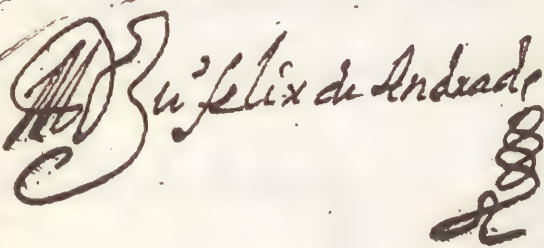 Felix de Andrade